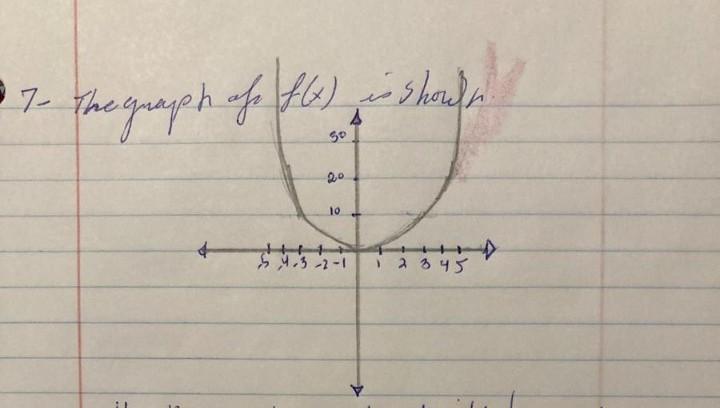 7- The graph of f(x) is shown.
30
20
10
-5 -4 -3 -2 -1 1 2 3 4 5